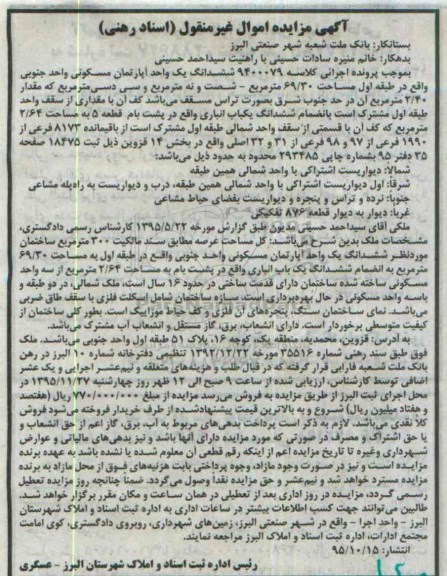 آگهی مزایده اموال غیرمنقول (اسناد رهنی)
بستانکار: بانک ملت شعبه شهر صنعتی البرز
بدهکار: خانم منیره سادات حسینی با راهنیت سیداحمد حسینی
بموجب پرونده اجرائی کلاسه ۹۴۰۰۰۷۹ ششدانگ یک واحد آپارتمان مسکونی واحد جنوبی
واقع در طبقه اول مساحت ۶۹/۳۰ مترمربع - شصت و نه مترمربع و سی دسی‌مترمربع که مقدار
۲/۴۰ مترمربع آن در حد جنوب شرق بصورت تراس مسقف می‌باشد کف آن با مقداری از سقف واحد
طبقه اول مشترک است بانضمام ششدانگ یکباب انباری واقع در پشت بام قطعه ۵ به مساحت ۲/۶۴
مترمربع که کف آن با قسمتی از سقف واحد شمالی طبقه اول مشترک است از باقیمانده ۸۱۷۳ فرعی از
۱۹۹۰ فرعی از ۹۷ و ۹۸ فرعی از ۳۱ و ۳۲ اصلی واقع در بخش ۱۴ قزوین ذیل ثبت ۱۸۴۷۵ صفحه
۳۵ دفتر ۹۵ بشماره چاپی ۲۹۳۴۸۵ محدود به حدود ذیل می‌باشد:
شمالا: دیواریست اشتراکی با واحد شمالی همین طبقه
شرقا: اول دیواریست اشتراکی با واحد شمالی همین طبقه، درب و دیواریست به راه‌پله مشاعی
جنوبا: نرده و تراس و پنجره و دیواریست بفضای حیاط مشاعی
غربا: دیوار به دیوار قطعه ۸۷۶ تفکیکی
ملکی آقای سیداحمد حسینی مدیون طبق گزارش مورخه ۱۳۹۵/۵/۲۲ کارشناس رسمی دادگستری،
مشخصات ملک بدین شرح می‌باشد: کل مساحت عرصه مطابق سند مالکیت ۳۰۰ مترمربع ساختمان
موردنظر ششدانگ یک واحد آپارتمان مسکونی واحد جنوبی واقع در طبقه اول به مساحت ۶۹/۳۰
مترمربع به انضمام ششدانگ یک باب انباری واقع در پشت بام به مساحت ۲/۶۴ مترمربع از سه واحد
مسکونی ساخته شده ساختمان دارای قدمت ساختی در حدود ۱۶ سال است، ملک شمالی، در دو طبقه و
باسه واحد مسکونی در حال بهره‌برداری است. سازه ساختمان شامل اسکلت فلزی با سقف طاق ضربی
می‌باشد. نمای ساختمان سنگ، پنجره‌های آن فلزی و کف حیاط موزاییک است. بطور کلی ساختمان از
کیفیت متوسطی برخوردار است. دارای انشعاب، برق، گاز مستقل و انشعاب آب مشترک می‌باشد.
به آدرس: قزوین، محمدیه، منطقه یک، کوچه ۱۶، پلاک ۵۱ طبقه اول واحد جنوبی می‌باشد. ملک
فوق طبق سند رهنی شماره ۳۵۵۱۶ مورخه ۱۳۹۲/۱۲/۲۲ تنظیمی دفترخانه شماره ۱۰ البرز در رهن
بانک ملت شعبه فارابی قرار گرفته که در قبال طلب و هزینه‌های متعلقه و نیم‌عشر اجرایی و یک عشر
اضافی توسط کارشناس، ارزیابی شده از ساعت ۹ صبح الی ۱۲ ظهر روز چهارشنبه ۱۳۹۵/۱۱/۲۷ در
محل اجرای ثبت البرز از طریق مزایده به فروش می‌رسد مزایده از مبلغ ۷۷۰/۰۰۰/۰۰۰ ریال (هفتصد
و هفتاد میلیون ریال) شروع و به بالاترین قیمت پیشنهادشده از طرف خریدار فروخته می‌شود فروش
کلا نقدی می‌باشد. لازم به ذکر است پرداخت بدهی‌های مربوط به آب، برق، گاز اعم از حق انشعاب و
یا حق اشتراک و مصرف در صورتی که مورد مزایده دارای آنها باشد و نیز بدهی‌های مالیاتی و عوارض
شهرداری وغیره تا تاریخ مزایده اعم از اینکه رقم قطعی آن معلوم شده یا نشده باشد به عهده برنده
مزایده است و نیز در صورت وجود مازاد، وجوه پرداختی بابت هزینه‌های فوق از محل مازاد به برنده
مزایده مسترد خواهد شد و نیم‌عشر و حق مزایده نقدا وصول می‌گردد. ضمنا چنانچه روز مزایده تعطیل
رسمی گردد، مزایده در روز اداری بعد از تعطیلی در همان ساعت و مکان مقرر برگزار خواهد شد.
طالبین می‌توانند جهت کسب اطلاعات بیشتر در ساعات اداری به اداره ثبت اسناد و املاک شهرستان
البرز - واحد اجرا - واقع در شهر صنعتی البرز، زمین‌های شهرداری، روبروی دادگستری، کوی امامت
مجتمع ادارات، اداره ثبت اسناد و املاک البرز مراجعه نمایند.
انتشار: ۹۵/۱۰/۱۵
رئیس اداره ثبت اسناد و املاک شهرستان البرز - عسگری